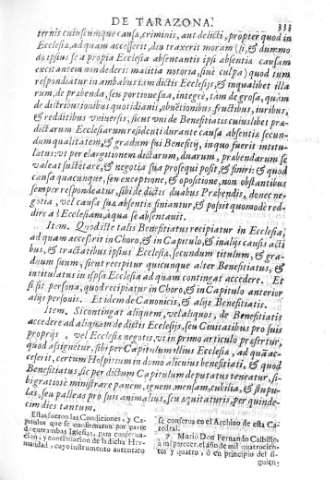 DE TARAZONA. 333
ternis cuiuscumque causa, criminis, aut delicti, propter quod in
Ecclesia, ad quam accesserit, diu traxerit moram (si, & dummo
do ipsius se a propia Ecclesia absentantis ipsi absentia causam
excitantem non dederit malitia motoria, sive culpa) quod tum
respondeatur in ambabus Ecclesijs, & in qualibet illa
rum, de prabenda, seu portione sua, integrè, tàm de grosa, quàm
de distributionibus quotidianis, obventionibus, fructibus, iuribus,
& redditibus universis, sicut uni de Benefitiatis cuiuslibet pra
dictarum Ecclesiarum residenti durante causa absentia secun-
dum qualitatem, & gradum sui Benefitij, in quo fuerit intitu-
latus: ut per elargitionem dictarum, duarum, prabendarum se
valeat sustetare, & negotia sua prosequi posit, & finiri: & quod
causa quacunque, seu exceptione, & opositione, non obstantibus
semper respondeatur, sibi de dictis duabus Prabendis, donec ne-
gotia, vel causa sua absentie finiantur, & posit quomodè red-
dire ad Ecclesiam, a qua se absentauit.
Item. Quod iste talis Benefitiatus recipiatur in Ecclesia,
ad quam accesserit in Choro, & in Capitulo, & in alijs causis acti
bus, & tractatibus ipsius Ecclesia, secundum titulum, & gra-
dum suum, sicut recipitur quicunque alter Benefitiatus, &
intitulatus in ipsa Ecclesia ad quam contingat accedere. Et
si sit persona, quod recipiatur in Choro, & in Capitulo anterior
alijs personis. Et idem de Canonicis, & alijs Benefitiatis.
Item, Si contingat aliquem, vel aliquos, de Benefitiatis
accedere ad aliquam de dictis Ecclesijs, seu Civitatibus pro suis
proprijs, vel Ecclesia negotijs, ut in primo articulo prefertur,
quod assignetur, sibi per Capitulum illius Ecclesia, ad quã ac-
cesserit, certum Hospitium in domo alicuius benefitiati, & quod
Benefitiatus, sic per dictum Capitulum deputatus teneatur, si-
bi gratiosè ministrare panem, ignem, mensam, cubilia, & stupu-
las, seu palleas pro suis animalibus, seu equitaturis, per quinde-
cim dies tantum.
Estas fueron las Condiciones, y Ca-
pitulos que se confirmaron por parte
de entrambas Iglesias, para conserva-
cion, y continuacion de la dicha Her-
mandad, cuyo instrumento autentico
se conserva en el Archivo de esta Ca-
tedral.
7. Mario Don Fernando Calbillo,
à mi parecer, el año de mil quatrocien-
tos y quatro, ò en principio del si-
guien-